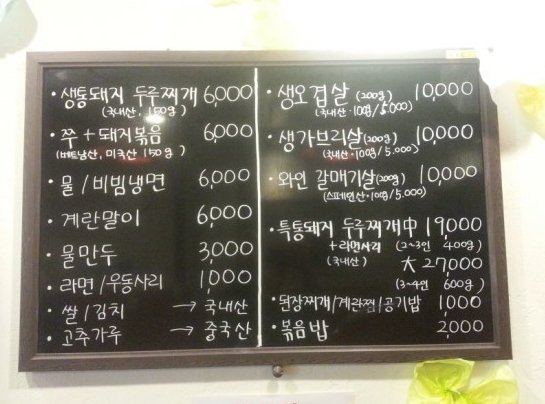 · 생통돼지 두루찌개 6,000
(국내산, 150g)
· 쭈 + 돼지볶음 6,000
(베트남산, 미국산 150g)
· 물/비빔냉면 6,000
· 계란말이 6,000
· 물만두 3,000
· 라면/우동사리 1,000
· 쌀/김치 → 국내산
· 고추가루 → 중국산
· 생오겹살 (200g) 10,000
(국내산·100g/5,000)
· 생가브리살 (200g) 10,000
(국내산·100g/5,000)
· 와인 갈매기살 (200g) 10,000
(스페인산·100g/5,000)
· 특통돼지 두루찌개 中 19,000
+ 라면사리 (2~3인 400g)
(국내산) 大 27,000
(3~4인 600g)
· 된장찌개/계란찜/공기밥 1,000
· 볶음밥 2,000